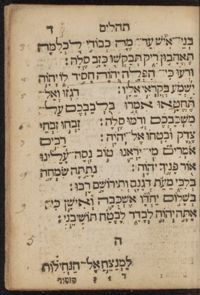 תהלים ד
בְּנֵי־אִישׁ עַד־מֶה כְבוֹדִי לִכְלִמָּה
תֶּאֱהָבוּן רִיק תְּבַקְשׁוּ כָזָב סֶלָה׃
וּדְעוּ כִּי־הִפְלָה יְהוָה חָסִיד לוֹ יְהוָה
יִשְׁמַע בְּקָרְאִי אֵלָיו׃ רִגְזוּ וְאַל
תֶּחֱטָאוּ אִמְרוּ בִלְבַבְכֶם עַל
מִשְׁכַּבְכֶם וְדֹמּוּ סֶלָה׃ זִבְחוּ זִבְחֵי
צֶדֶק וּבִטְחוּ אֶל־יְהוָה׃ רַבִּים
אֹמְרִים מִי־יַרְאֵנוּ טוֹב נְסָה־עָלֵינוּ
אוֹר פָּנֶיךָ יְהוָה׃ נָתַתָּה שִׂמְחָה
בְלִבִּי מֵעֵת דְּגָנָם וְתִירוֹשָׁם רָבּוּ׃
בְּשָׁלוֹם יַחְדָּו אֶשְׁכְּבָה וְאִישָׁן כִּי־
אַתָּה יְהוָה לְבָדָד לָבֶטַח תּוֹשִׁיבֵנִי׃
ה
לַמְנַצֵּחַ אֶל־הַנְּחִילוֹת